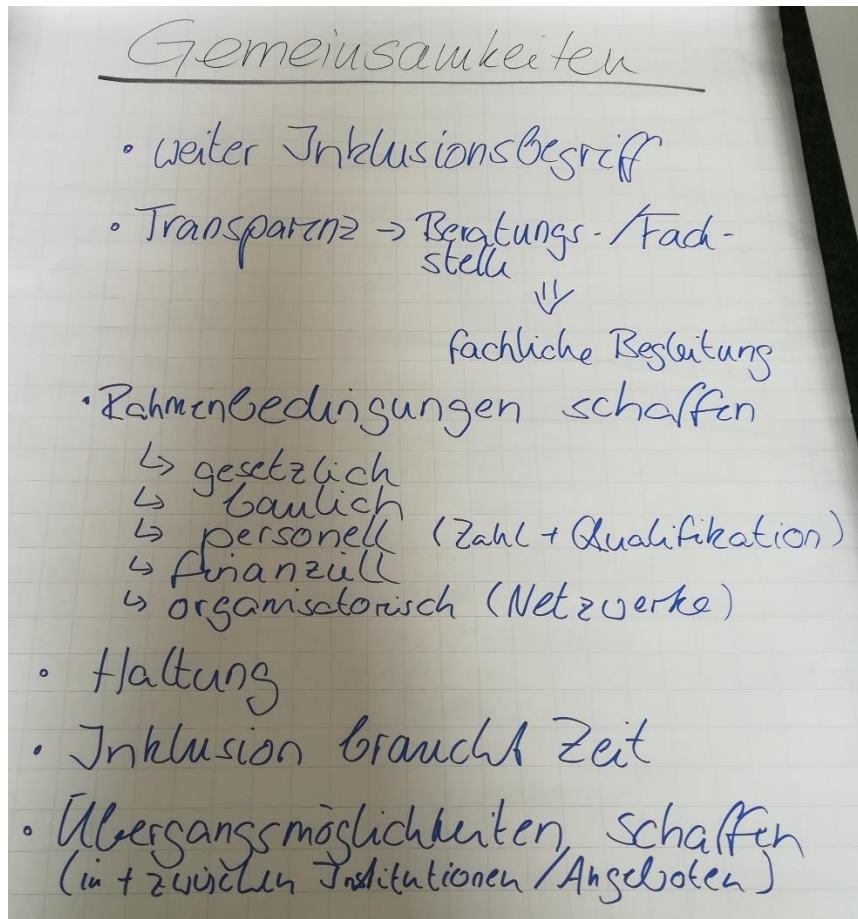 Gemeinsamkeiten
• weiter Inklusionsbegriff
• Transparenz → Beratungs-/Fach-
stelle
⇓
fachliche Begleitung
• Rahmenbedingungen schaffen
↳ gesetzlich
↳ baulich
↳ personell (Zahl + Qualifikation)
↳ finanziell
↳ organisatorisch (Netzwerke)
• Haltung
• Inklusion braucht Zeit
• Übergangsmöglichkeiten schaffen
(in + zwischen Institutionen / Angeboten)